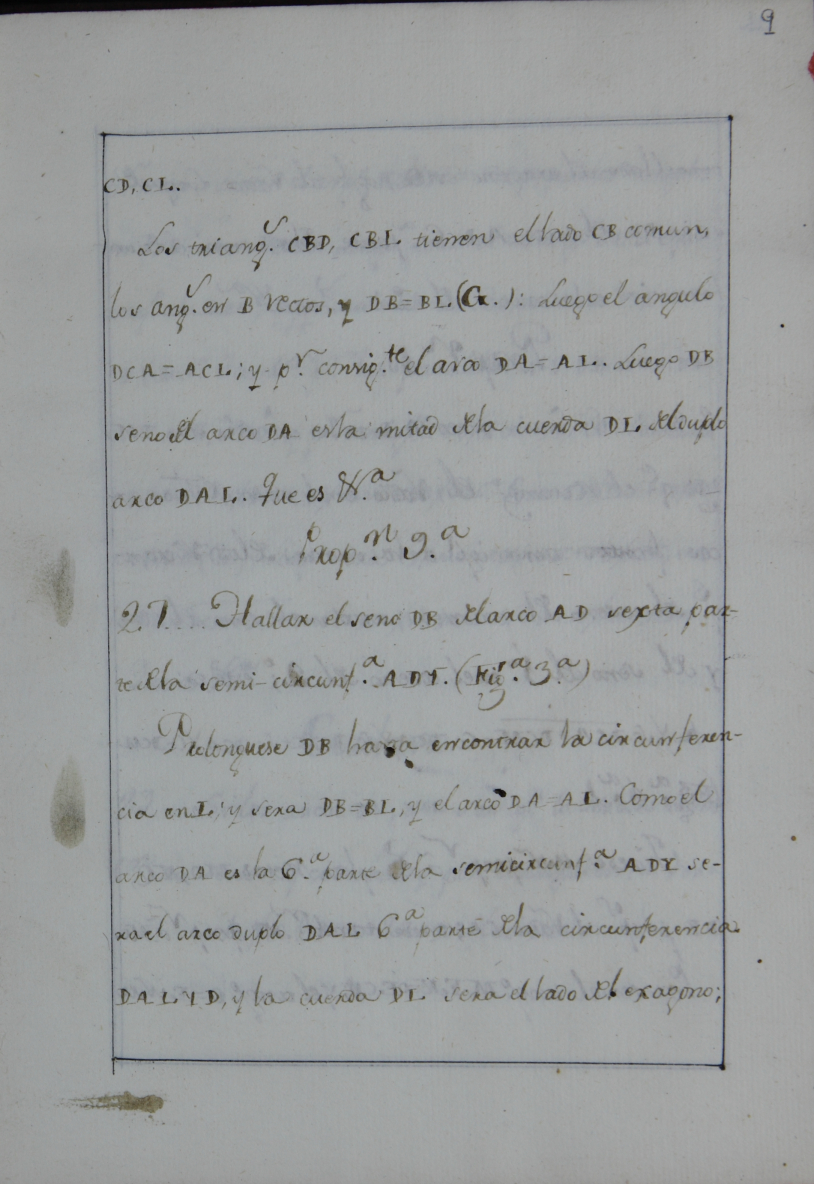 9
CD, CL.
Los triang.s CBD, CBL tienen el lado CB comun,
los ang.s en B rectos, y DB=BL (G.): Luego el angulo
DCA=ACL; y p.r consig.te el arco DA=AL. Luego DB
seno del arco DA es la mitad dela cuerda DL del duplo
arco DAL. Que es &.a
Prop.n 9.a
27.... Hallar el seno DB del arco AD sexta par-
te dela semi-circunf.a ADY. (Fig.a 3.a)
Prolonguese DB hasta encontrar la circunferen-
cia en L; y sera DB=BL, y el arco DA=AL. Como el
arco DA es la 6.a parte dela semicircunf.a ADY se-
ra el arco duplo DAL 6.a parte dela circunferencia
DALYD, y la cuerda DL sera el lado del exagono;